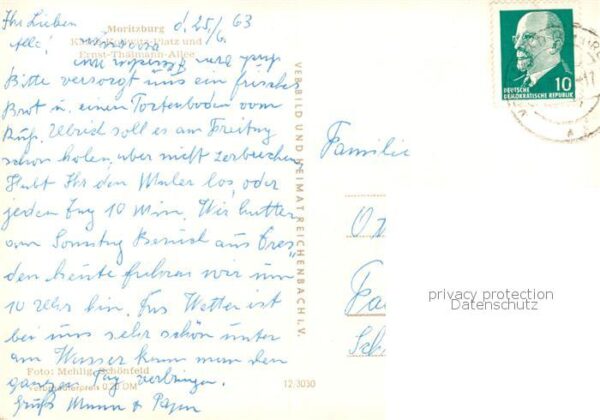 Ihr Lieben d. 25/6. 63
Alle!
Moritzburg
Käthe-Kollwitz-Platz und
Ernst-Thälmann-Allee
Bitte versorgt uns ein frisches
Brot u. einen Tortenboden vom
Ulrich soll es am Freitag
schon holen, aber nicht zerbrechen.
Habt Ihr den Maler los, oder
jeden Tag 10 Min. Wir hatten
am Sonntag Besuch aus Dres
den heute fuhren wir um
10 Uhr hin. Das Wetter ist
bei uns sehr schön unter
am Wasser kann man den
ganzen Tag verbringen.
Gruß Mama + Papa
Foto: Mehlig, Schönfeld
Verbraucherpreis 0,20 DM
12/3030
VERL. BILD UND HEIMAT REICHENBACH i. V.
10
DEUTSCHE
DEMOKRATISCHE REPUBLIK
Familie
privacy protection
Datenschutz